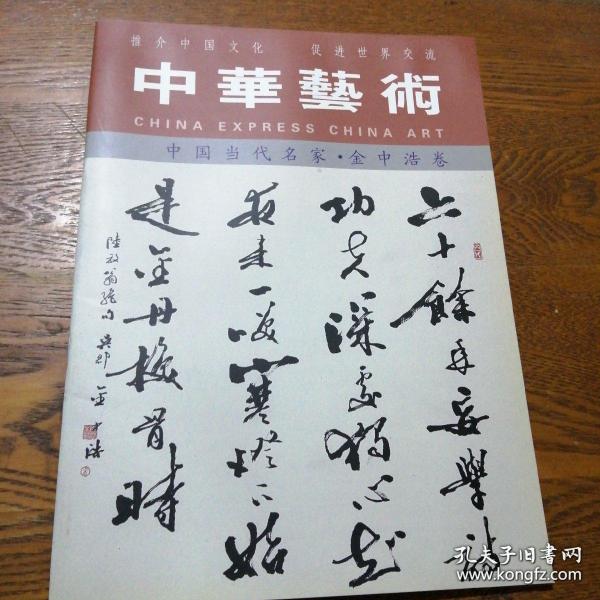 推介中国文化 促进世界交流
中華藝術
CHINA EXPRESS CHINA ART
中国当代名家·金中浩卷
六十餘年妄學詩
功夫深處獨心知
夜来一笑寒燈下
始是金丹換骨時
陸放翁絶句 吴郡 金中浩
孔夫子旧书网
www.kongfz.com